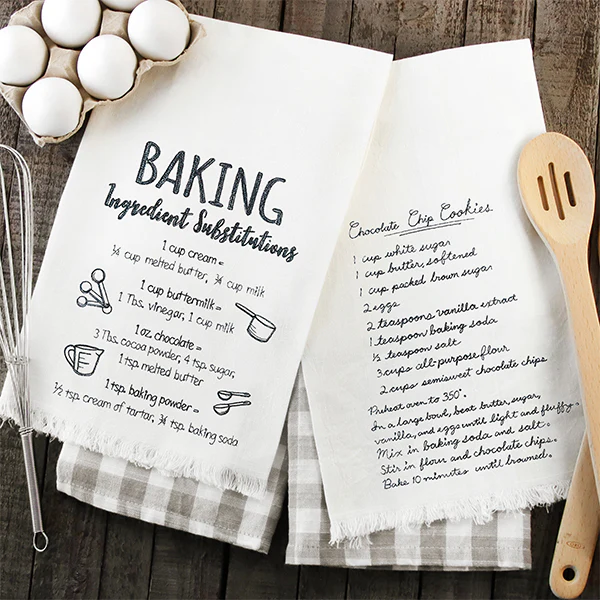 BAKING
Ingredient Substitutions
1 cup cream =
¼ cup melted butter, ¾ cup milk
1 cup buttermilk =
1 Tbs. vinegar, 1 cup milk
1 oz. chocolate =
3 Tbs. cocoa powder, 4 tsp. sugar,
1 tsp. melted butter
1 tsp. baking powder =
½ tsp. cream of tartar, ¾ tsp. baking soda
Chocolate Chip Cookies
1 cup white sugar
1 cup butter, softened
1 cup packed brown sugar
2 eggs
2 teaspoons vanilla extract
1 teaspoon baking soda
½ teaspoon salt
3 cups all-purpose flour
2 cups semisweet chocolate chips
Preheat oven to 350°.
In a large bowl, beat butter, sugar,
vanilla, and eggs until light and fluffy.
Mix in baking soda and salt.
Stir in flour and chocolate chips.
Bake 10 minutes until browned.